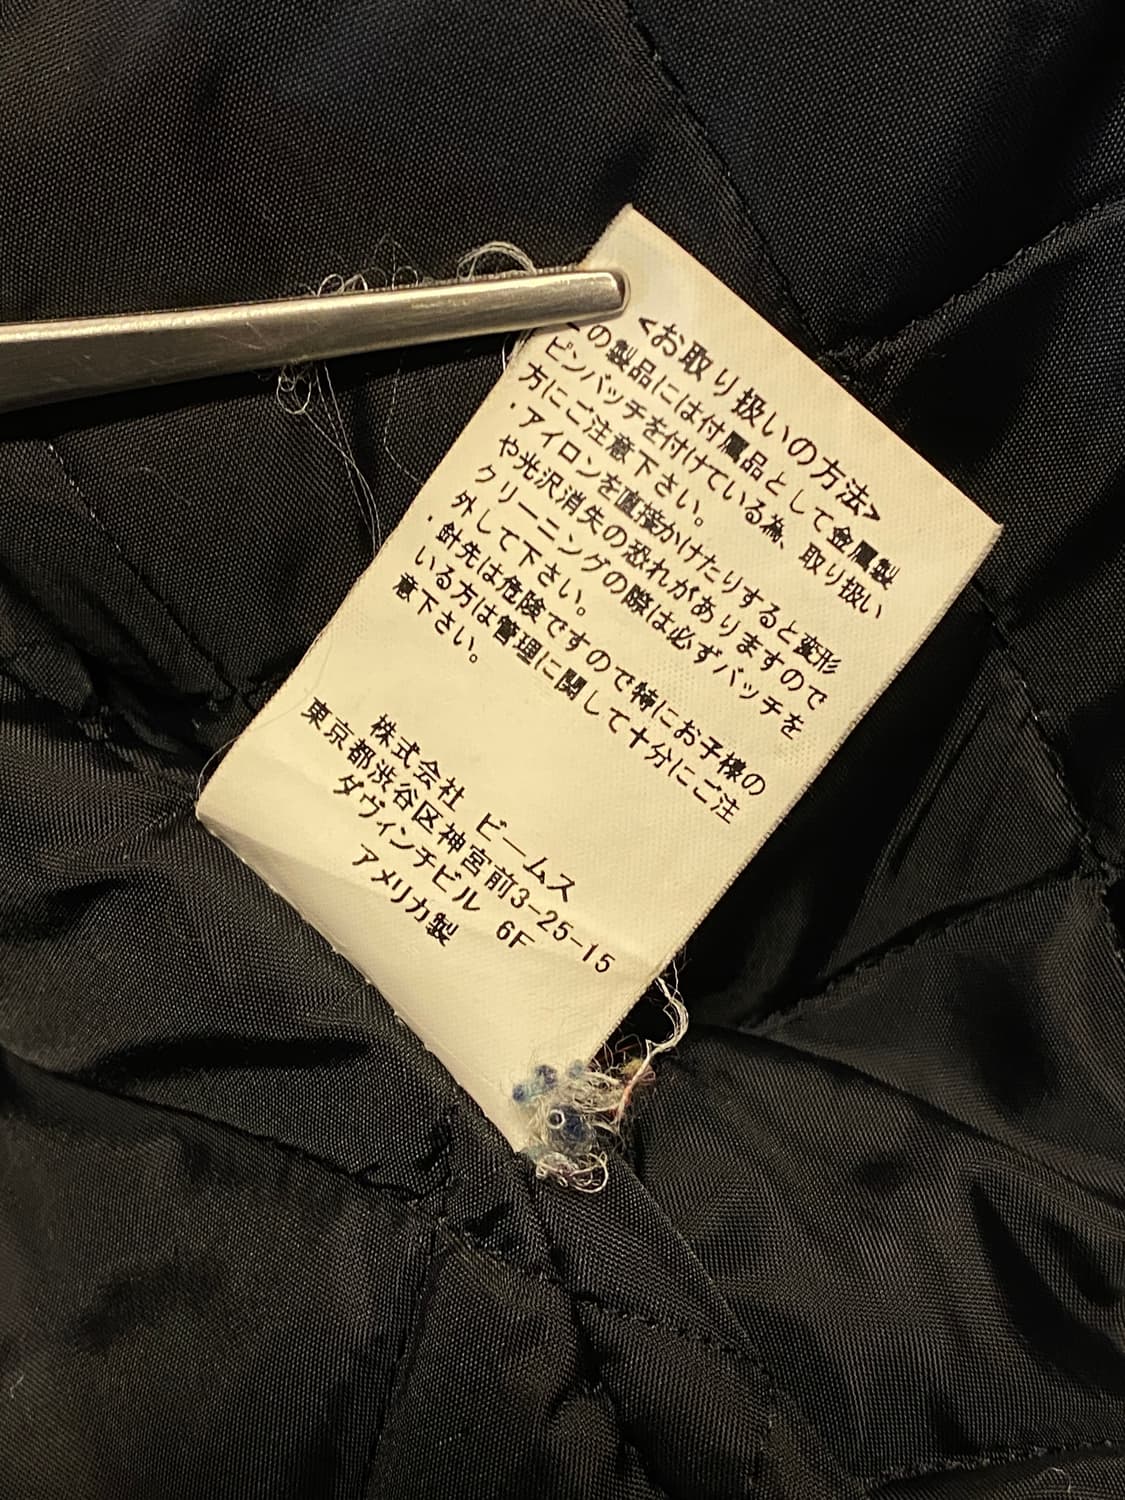 <お取り扱いの方法>
この製品には付属品として金属製
ピンバッチを付けている為、取り扱い
方にご注意下さい。
・アイロンを直接かけたりすると変形
や光沢消失の恐れがありますので
クリーニングの際は必ずバッチを
外して下さい。
・針先は危険ですので特にお子様の
いる方は管理に関して十分にご注
意下さい。
株式会社 ビームス
東京都渋谷区神宮前3-25-15
ダヴィンチビル 6F
アメリカ製